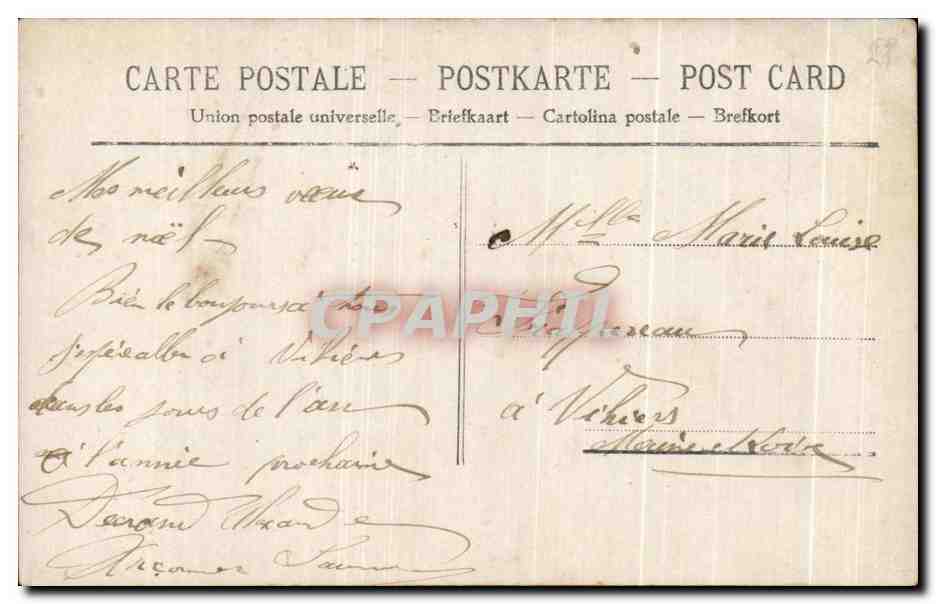 CARTE POSTALE — POSTKARTE — POST CARD
Union postale universelle. — Briefkaart — Cartolina postale — Brefkort
Mes meilleurs vœux
de noël
Bien le bonjour a tous
j'espère aller à Vihiers
dans les jours de l'an
à l'année prochaine
Durand
à Mlle Marie Louise
à Vihiers
Maine et Loire
CPAPHIL